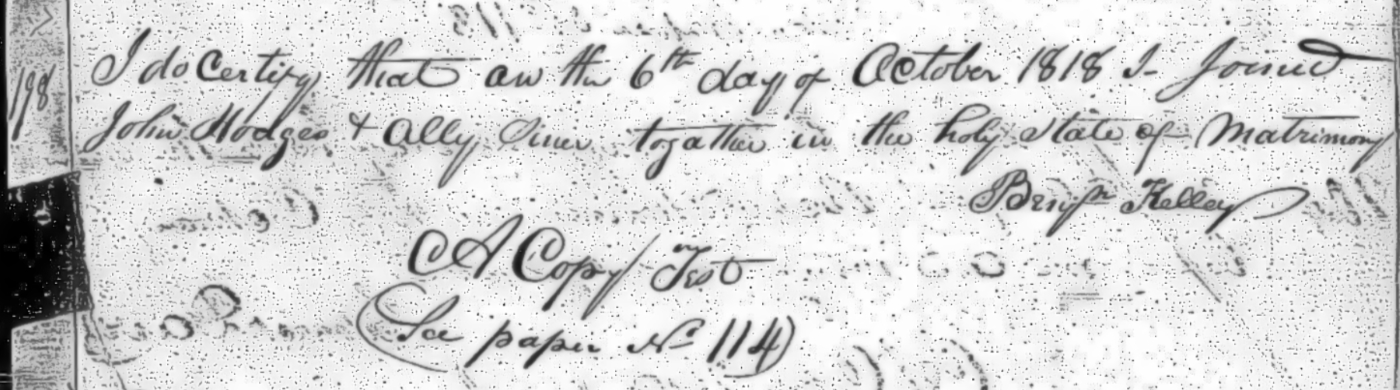 I do Certify that on the 6th day of October 1818 I Joined
John Hodges & Ally together in the holy State of Matrimony
Benjn Kelley
A Copy Test
(See paper No 114)